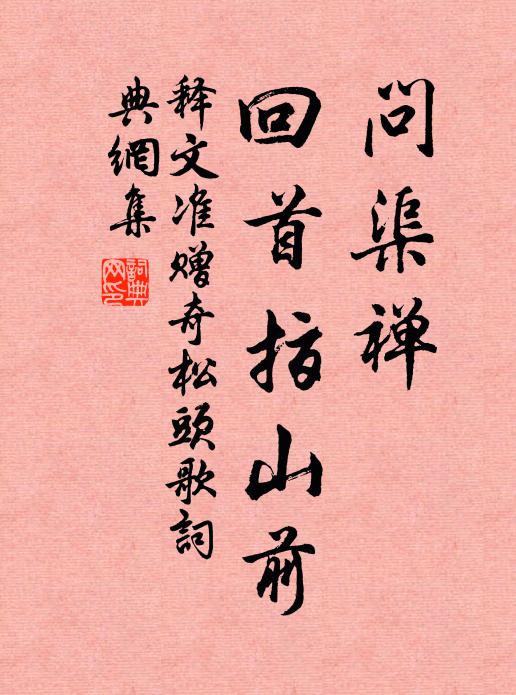 问渠禅
回首指山前
释文准赠奇松头歌词
典網集
詞典網印